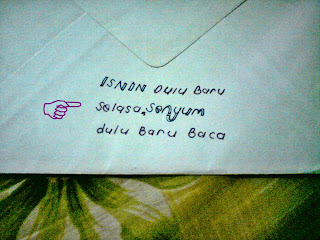 ISNIN Dulu Baru
Selasa, Senyum
dulu Baru Baca